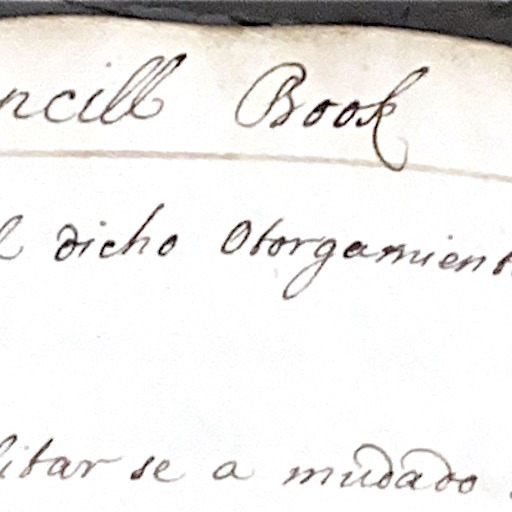 ncill Book
l dicho Otorgamient
litar se a mudado